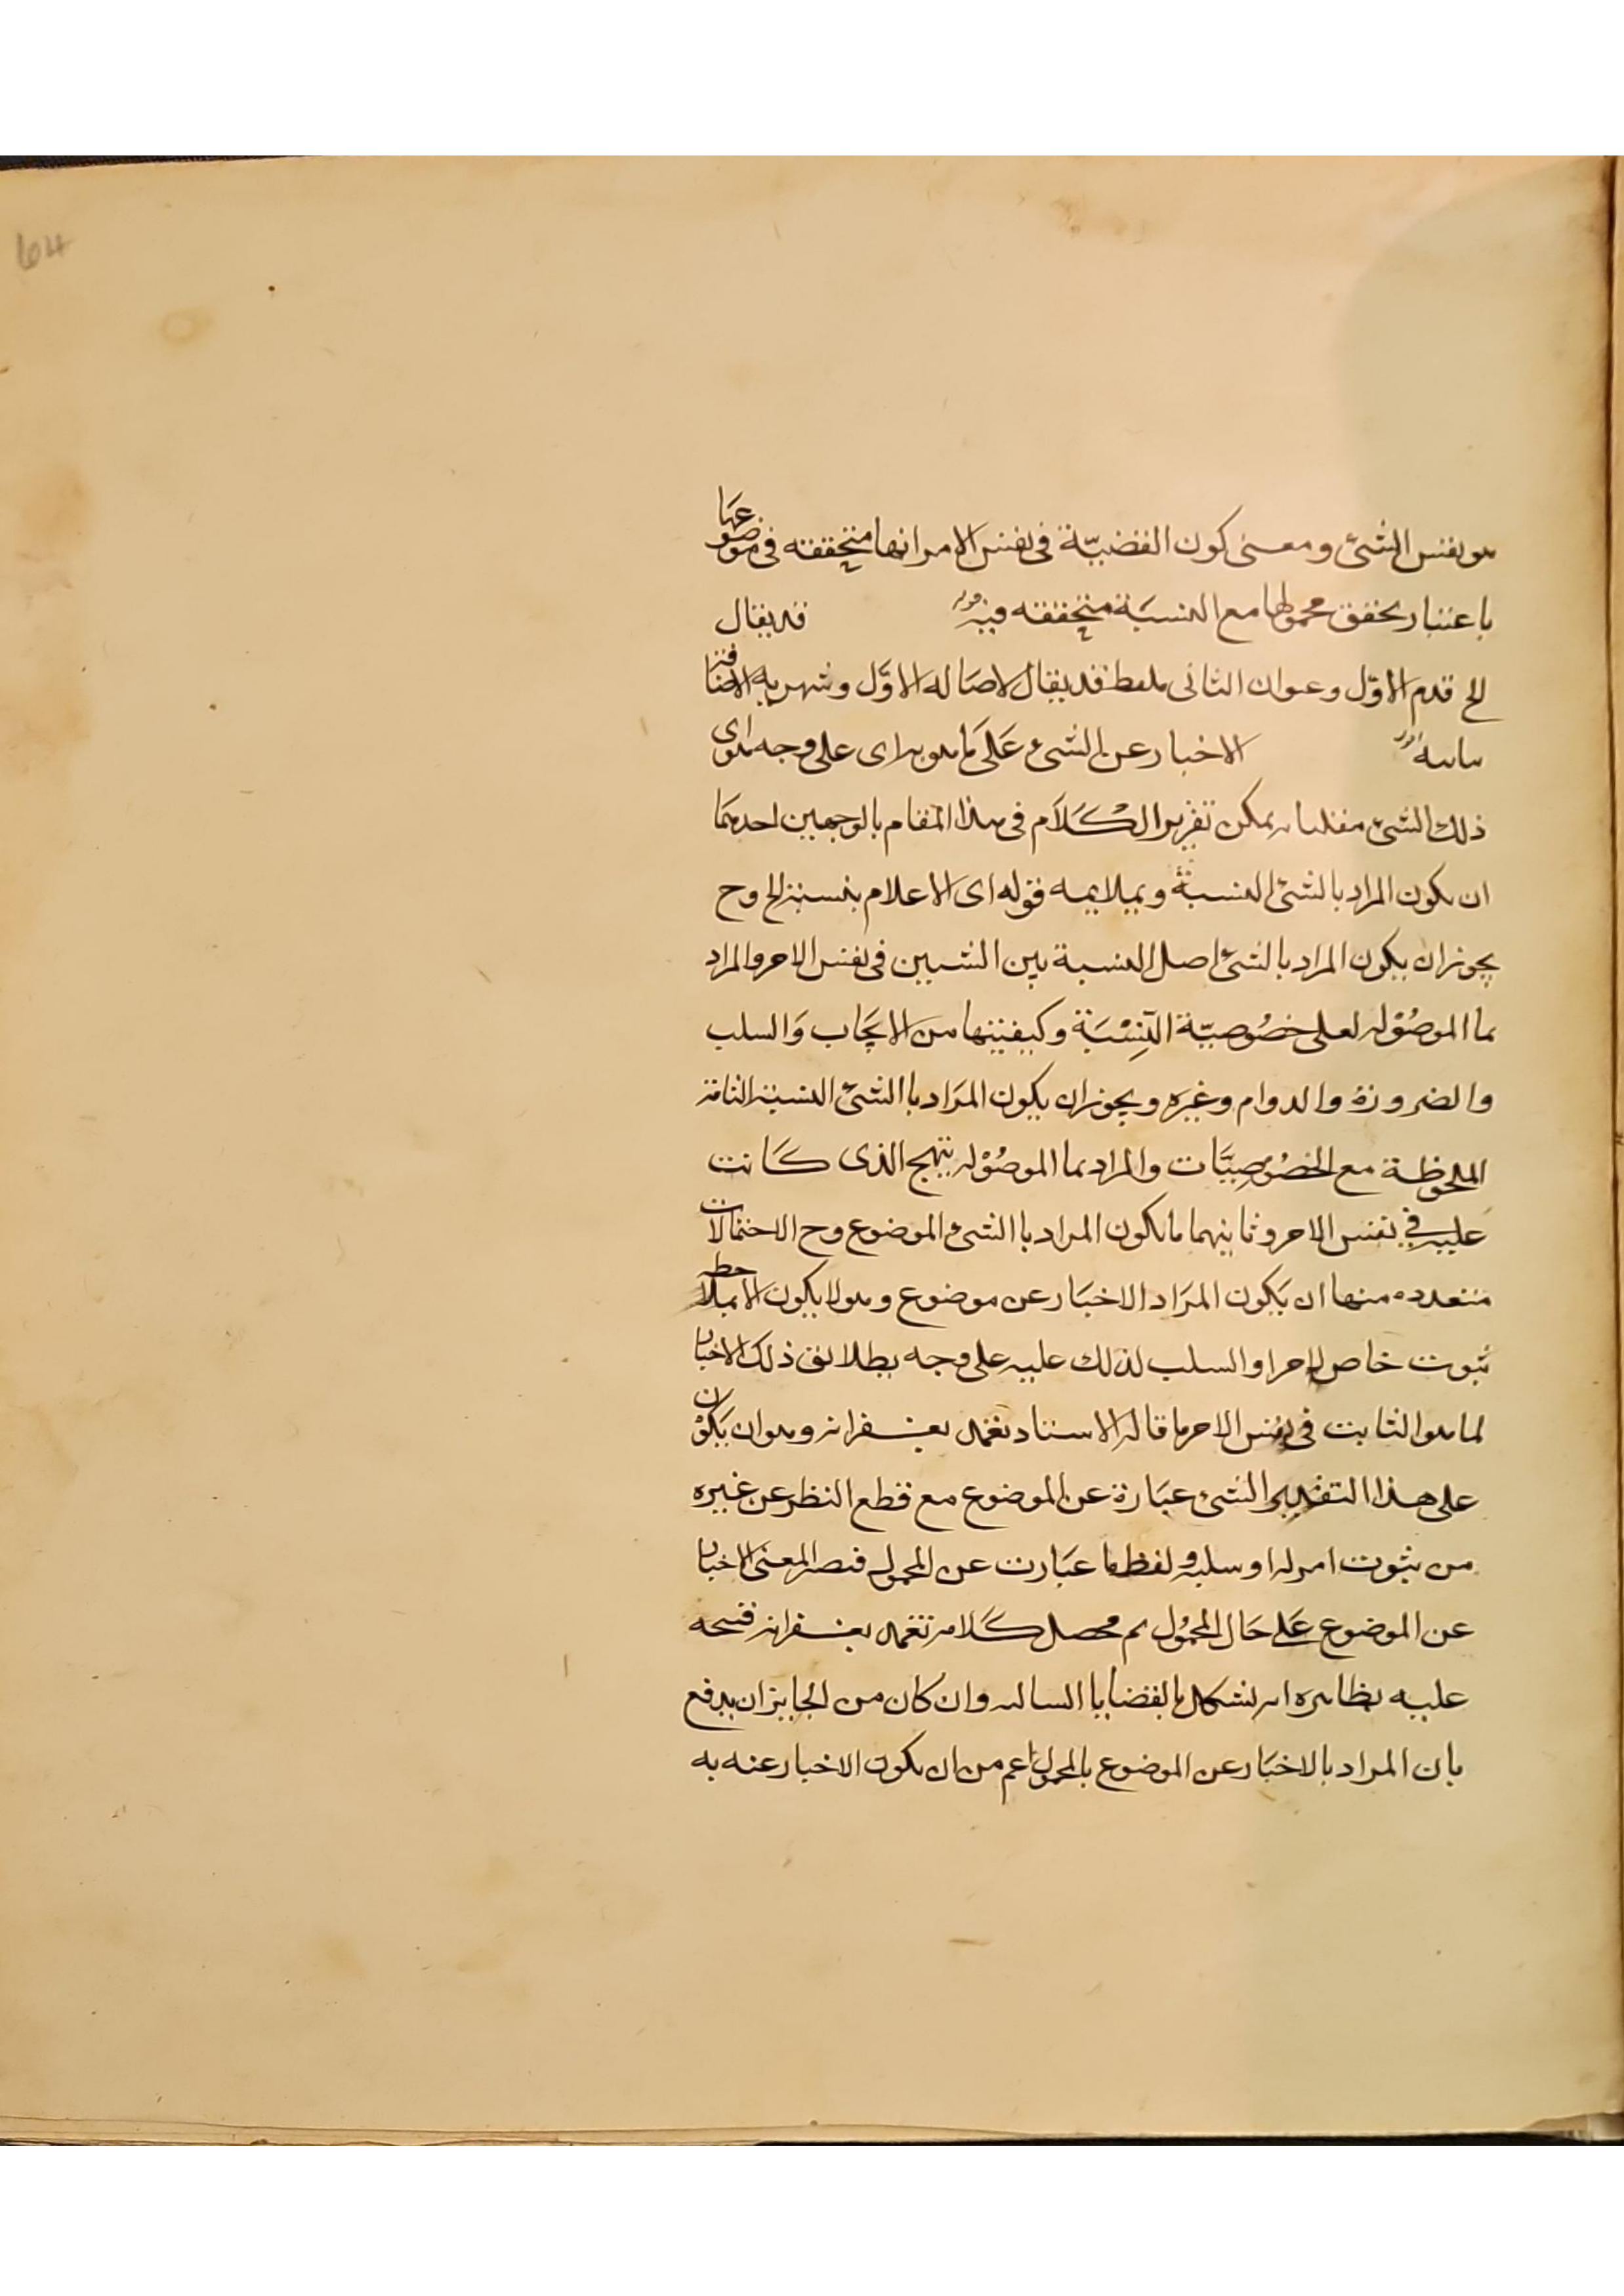 64
هو نفس الشئ ومعنى كون القضيّة فى نفس الامر انها متحققه فى موضوعها
باعتبار تحقق محمولها مع النسبَة متحققه فيه قد يقال
الخ قدم الاوّل وعنوان الثانى بلفظ قد يقال لاصَاله الاوّل وشهر به الاضافة
الاخبار عن الشئ عَلَى ما هو به اى على وجه هو اى
ذلك الشئ يمكن تقرير الكَلَام فى هذا المقام بالوجهين احدهمَا
ان يكون المراد بالشئ النسبة ويلايمه قوله اى الاعلام بنسبة الخ وح
يجوز ان يكون المراد بالشئ اصل النسبة بين الشيين فى نفس الامر والمراد
بما الموصُوله لعلى خصُوصيّة النِسْبَة وكيفيتها من الايجَاب وَالسلب
والضرورة والدوام وغيره ويجوز ان يكون المرَاد باالشئ النسبة الثامة
الملحوظة مع الخصُوصِيَّات والمراد بما الموصُوْله بنهج الذى كَانت
عليه فى نفس الامر وثانيهما ما يكون المراد باالشئ الموضوع وح الاحتمالات
متعدده منها ان يَكون المرَاد الاخبَار عن موضوع وهو لا يكون الا بملاحظه
ثبوت خاص لامر او السلب لذلك عليه على وجه يطلابق ذلك الاخبار
لما هو الثابت فى نفس الامر ما قاله الاستاد تغمده بغفرانه وهو ان يَكوْن
على هذا التقدير الشئ عبَارة عن الموضوع مع قطع النظر عن غيره
من ثبوت امر له او سلبه ولفظ ما عبَارت عن المحمول فيصير المعنى الاخبار
عن الموضوع عَلى حَال المحمُول ثم محصل كَلامه تغمده بغفرانه فيتجه
عليه بظاهره انه يشكل بالقضايا السالبه وان كان من الجايز ان يدفع
بان المراد بالاخبَار عن الموضوع بالمحمول اعم من ان يكون الاخبار عنه به